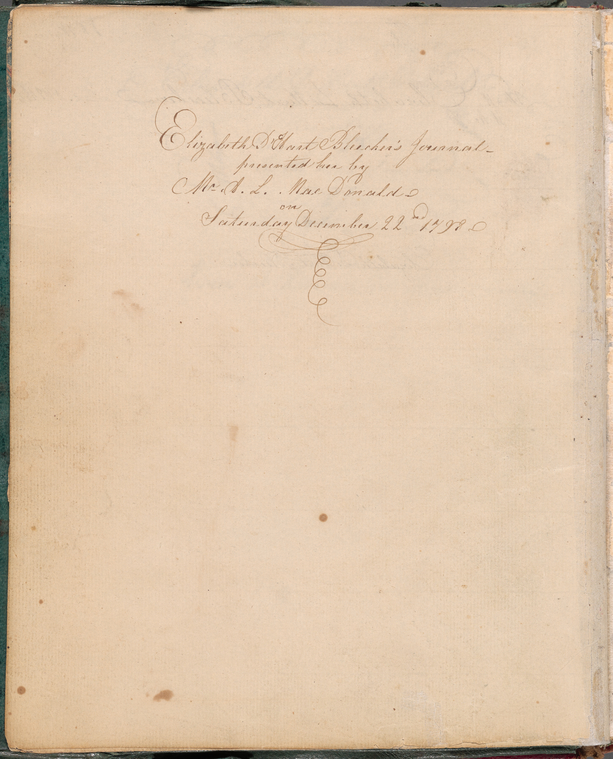 Elizabeth D'Hart Bleecker's Journal
presented her by
Mr. A. L. Mac Donald
on
Saturday December 22nd 1798